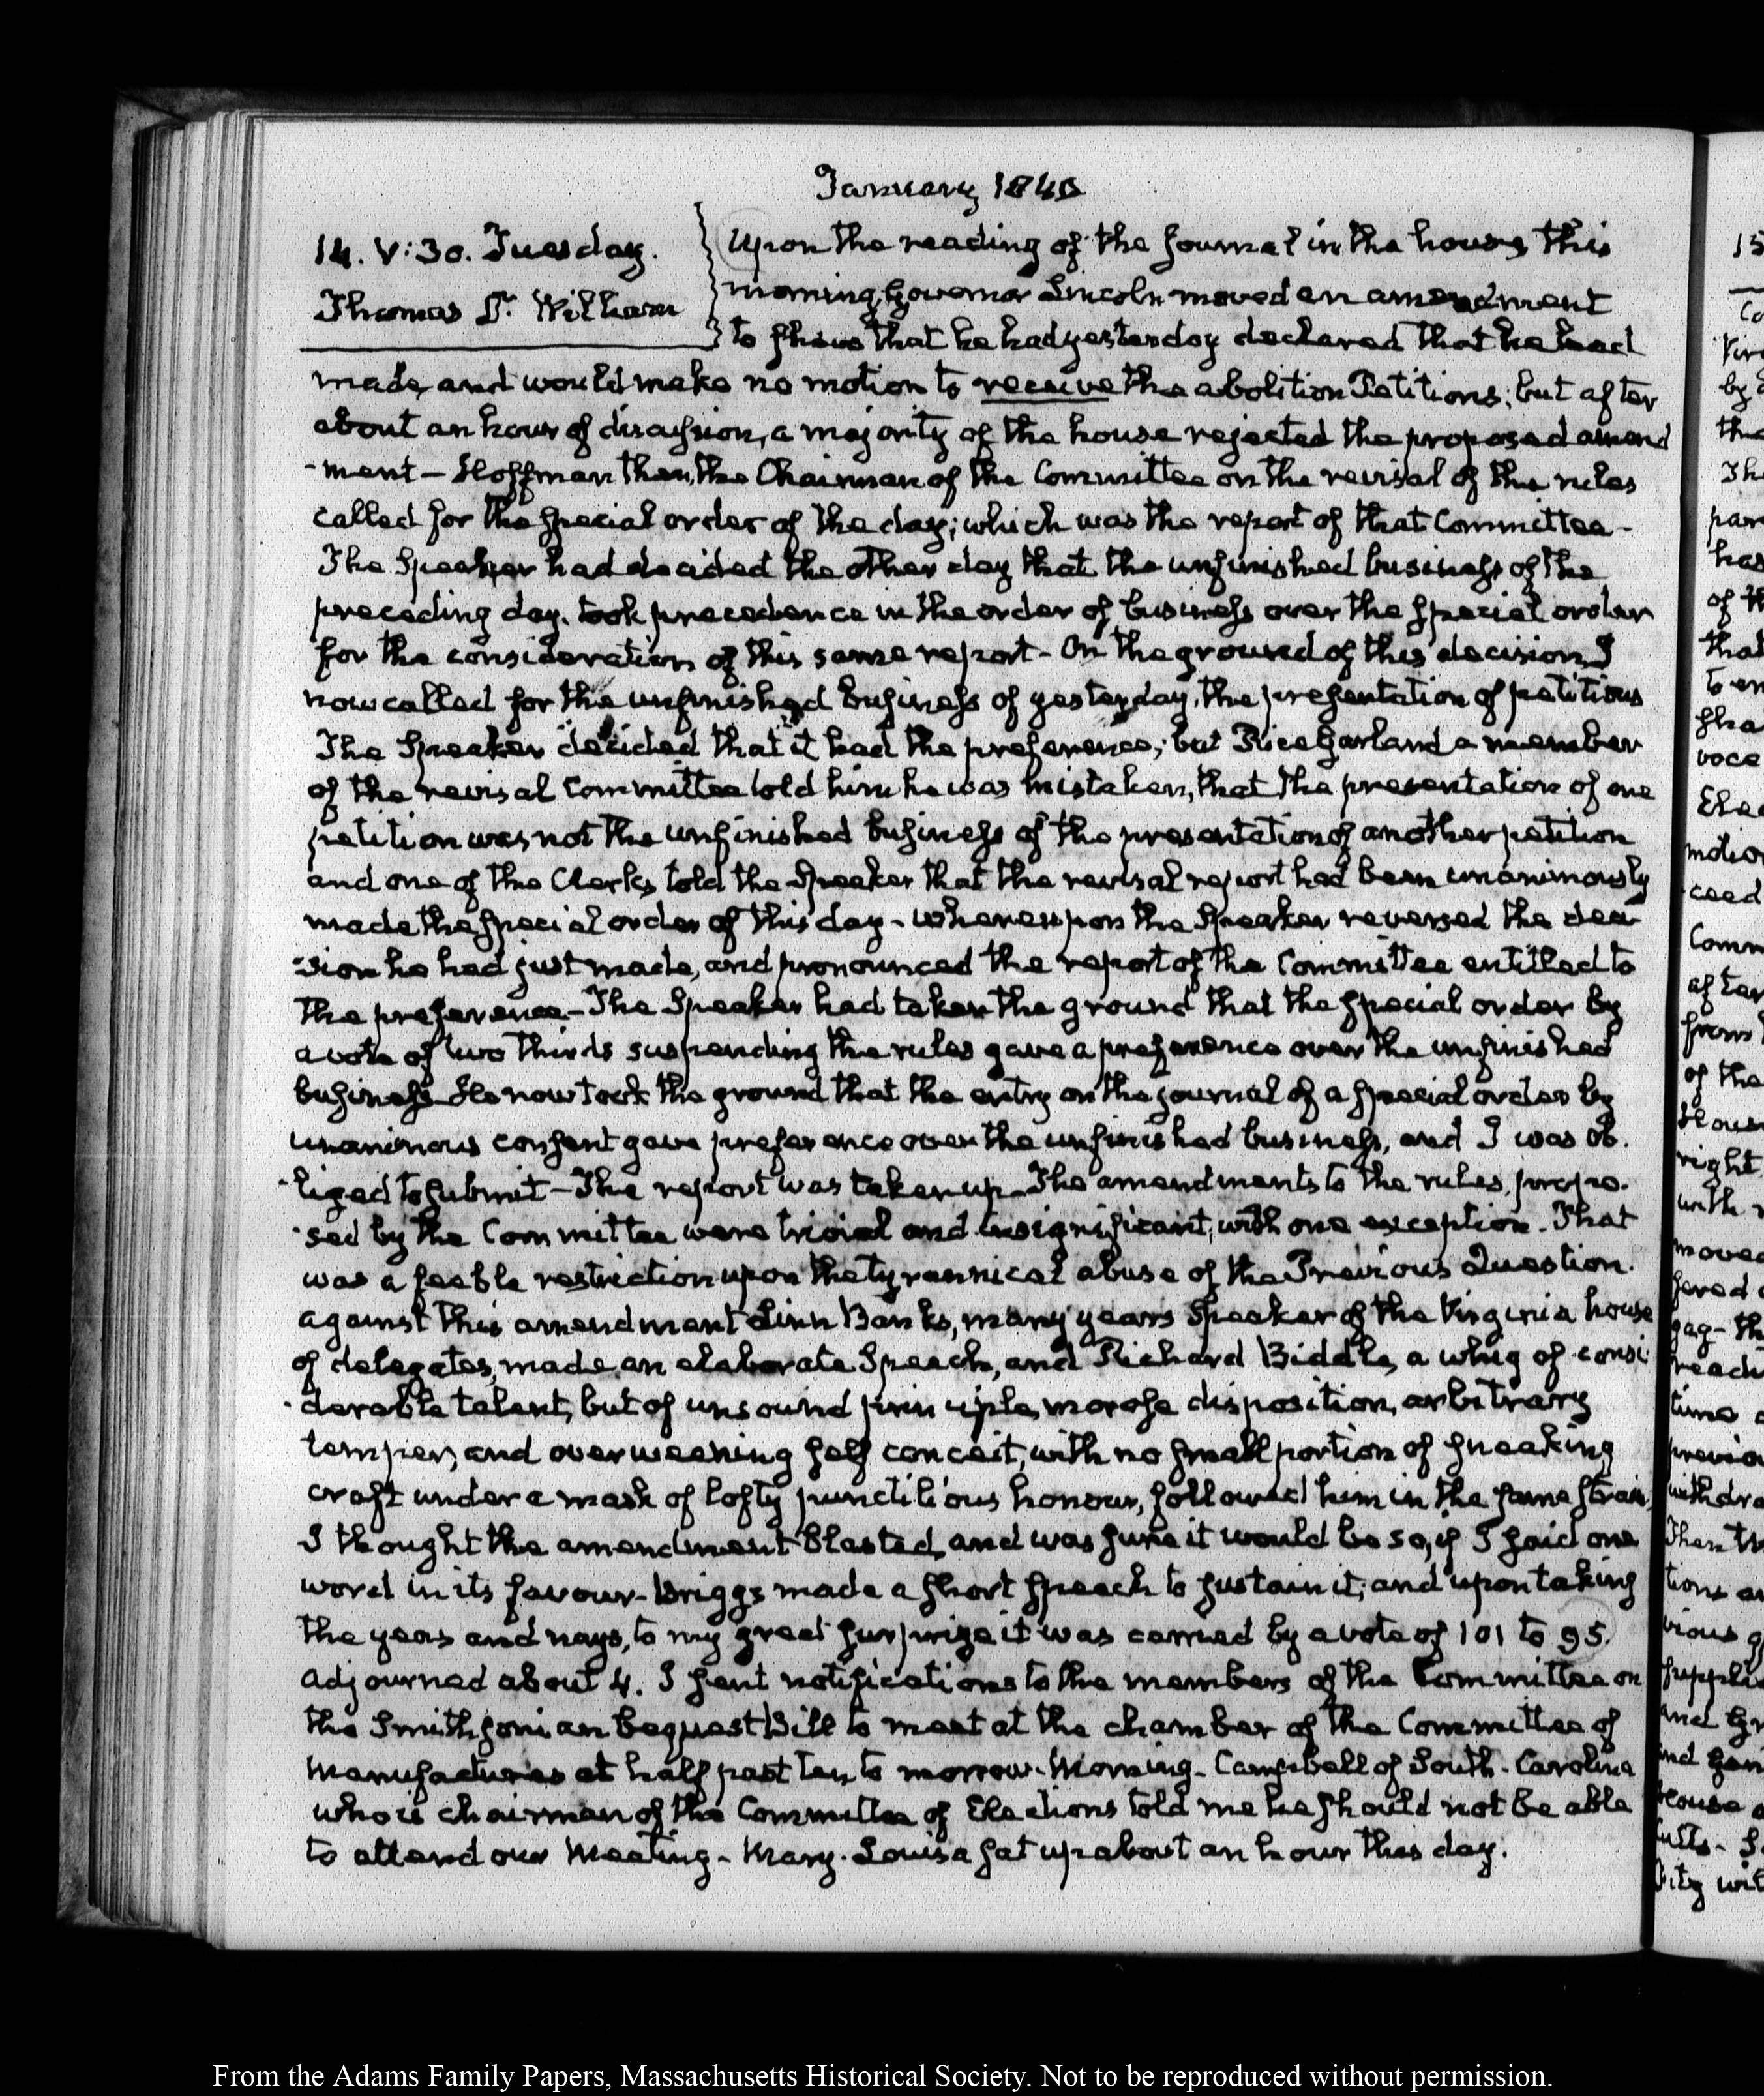 January 1840
14. V:30. Tuesday.
Thomas D. William
Upon the reading of the Journal in the house this
morning, Governor Lincoln moved an amendment
to shew that he had yesterday declared that he had
made, and would make no motion to receive the abolition Petitions; but after
about an hour of discussion, a majority of the house rejected the proposed amend
-ment – Hoffman then, the Chairman of the Committee on the revisal of the rules
called for the special order of the day; which was the report of that Committee –
The Speaker had decided the other day that the unfinished business of the
preceding day, took precedence in the order of business over the special order
for the consideration of this same report – On the ground of this decision I
now called for the unfinished business of yesterday, the presentation of petitions
The Speaker decided that it had the preference; but Rice Garland a member
of the revisal Committee told him he was mistaken, that the presentation of one
petition was not the unfinished business of the presentation of another petition
and one of the Clerks told the Speaker that the revisal report had been unanimously
made the special order of this day – whereupon the Speaker reversed the deci
-sion he had just made, and pronounced the report of the Committee entitled to
the preference – The Speaker had taken the ground that the special order by
a vote of two thirds suspending the rules gave a preference over the unfinished
business He now took the ground that the entry on the journal of a special order by
unanimous consent gave preference over the unfinished business, and I was ob.
-liged to submit – The report was taken up – The amendments to the rules, propo.
-sed by the Committee were trivial and insignificant, with one exception. That
was a feeble restriction upon the tyrannical abuse of the Previous Question.
against this amendment Linn Banks, many years Speaker of the Virginia house
of delegates, made an elaborate Speech, and Richard Biddle, a whig of consi
-derable talent, but of unsound principle, morose disposition, arbitrary
temper, and overweening self conceit, with no small portion of sneaking
craft under a mask of lofty punctilious honour, followed him in the same strain,
I thought the amendment blasted, and was sure it would be so, if I said one
word in its favour – Briggs made a short speech to sustain it; and upon taking
the yeas and nays, to my great surprize it was carried by a vote of 101 to 95.
adjourned about 4. I sent notifications to the members of the Committee on
the Smithsonian bequest Bill to meet at the chamber of the Committee of
Manufactures at half past ten to morrow – Morning – Campbell of South – Carolina
who is chairman of the Committee of Elections told me he should not be able
to attend our Meeting – Mary – Louisa sat up about an hour this day.
From the Adams Family Papers, Massachusetts Historical Society. Not to be reproduced without permission.